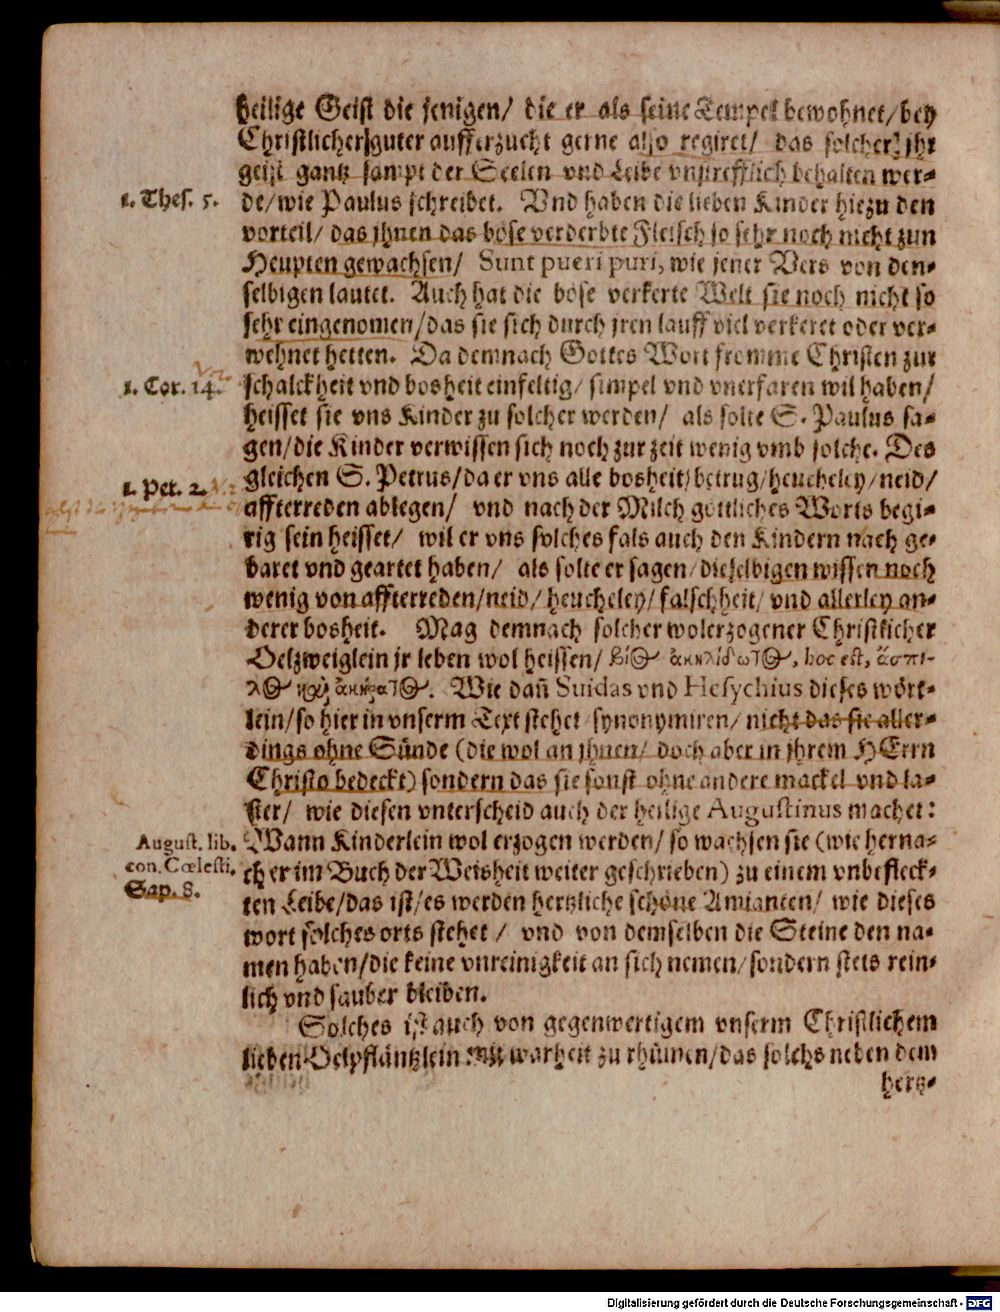 heilige Geist die jenigen/ die er als seine Tempel bewohnet/bey
Christlicher guter aufferzucht gerne also regiret/ das solcher jhr
geist gantz sampt der Seelen vnd Leibe vnstrefflich behalten wer-
1. Thes. 5.
de/wie Paulus schreibet. Vnd haben die lieben Kinder hiezu den
vorteil/ das jhnen das böse verderbte Fleisch so sehr noch nicht zun
Heupten gewachsen/ Sunt pueri puri, wie jener Vers von den-
selbigen lautet. Auch hat die böse verkerte Welt sie noch nicht so
sehr eingenomen/das sie sich durch jren lauff viel verkeret oder ver-
wehnet hetten. Da demnach Gottes Wort fromme Christen zur
1. Cor. 14.
schalckheit vnd bosheit einfeltig/ simpel vnd vnerfaren wil haben/
heisset sie vns Kinder zu solcher werden/ als solte S. Paulus sa-
gen/die Kinder verwissen sich noch zur zeit wenig vmb solche. Des
1. Pet. 2.
gleichen S. Petrus/da er vns alle bosheit/betrug/heucheley/neid/
affterreden ablegen/ vnd nach der Milch göttliches Worts begi-
rig sein heisset/ wil er vns solches fals auch den Kindern nach ge-
baret vnd geartet haben/ als solte er sagen/dieselbigen wissen noch
wenig von affterreden/neid/ heucheley/ falschheit/ vnd allerley an-
derer bosheit. Mag demnach solcher wolerzogener Christlicher
Oelzweiglein jr leben wol heissen/ βίος ἀκηλίδωτος, hoc est, ἄσπι-
λος καὶ ἀκήρατος. Wie dañ Suidas vnd Hesychius dieses wört-
lein/so hier in vnserm Text stehet/synonymiren/ nicht das sie aller-
dings ohne Sünde (die wol an jhnen/ doch aber in jhrem HErrn
Christo bedeckt) sondern das sie sonst ohne andere mackel vnd la-
ster/ wie diesen vnterscheid auch der heilige Augustinus machet:
August. lib.
con. Cœlesti.
Sap. 8.
Wann Kinderlein wol erzogen werden/ so wachsen sie (wie herna-
ch er im Buch der Weisheit weiter geschrieben) zu einem vnbefleck-
ten Leibe/das ist/es werden hertzliche schöne Amianten/ wie dieses
wort solches orts stehet/ vnd von demselben die Steine den na-
men haben/die keine vnreinigkeit an sich nemen/sondern stets rein-
lich vnd sauber bleiben.
Solches ist auch von gegenwertigem vnserm Christlichem
lieben Oelpfläntzlein mit warheit zu rhümen/das solchs neben dem
hertz-
Digitalisierung gefördert durch die Deutsche Forschungsgemeinschaft - DFG